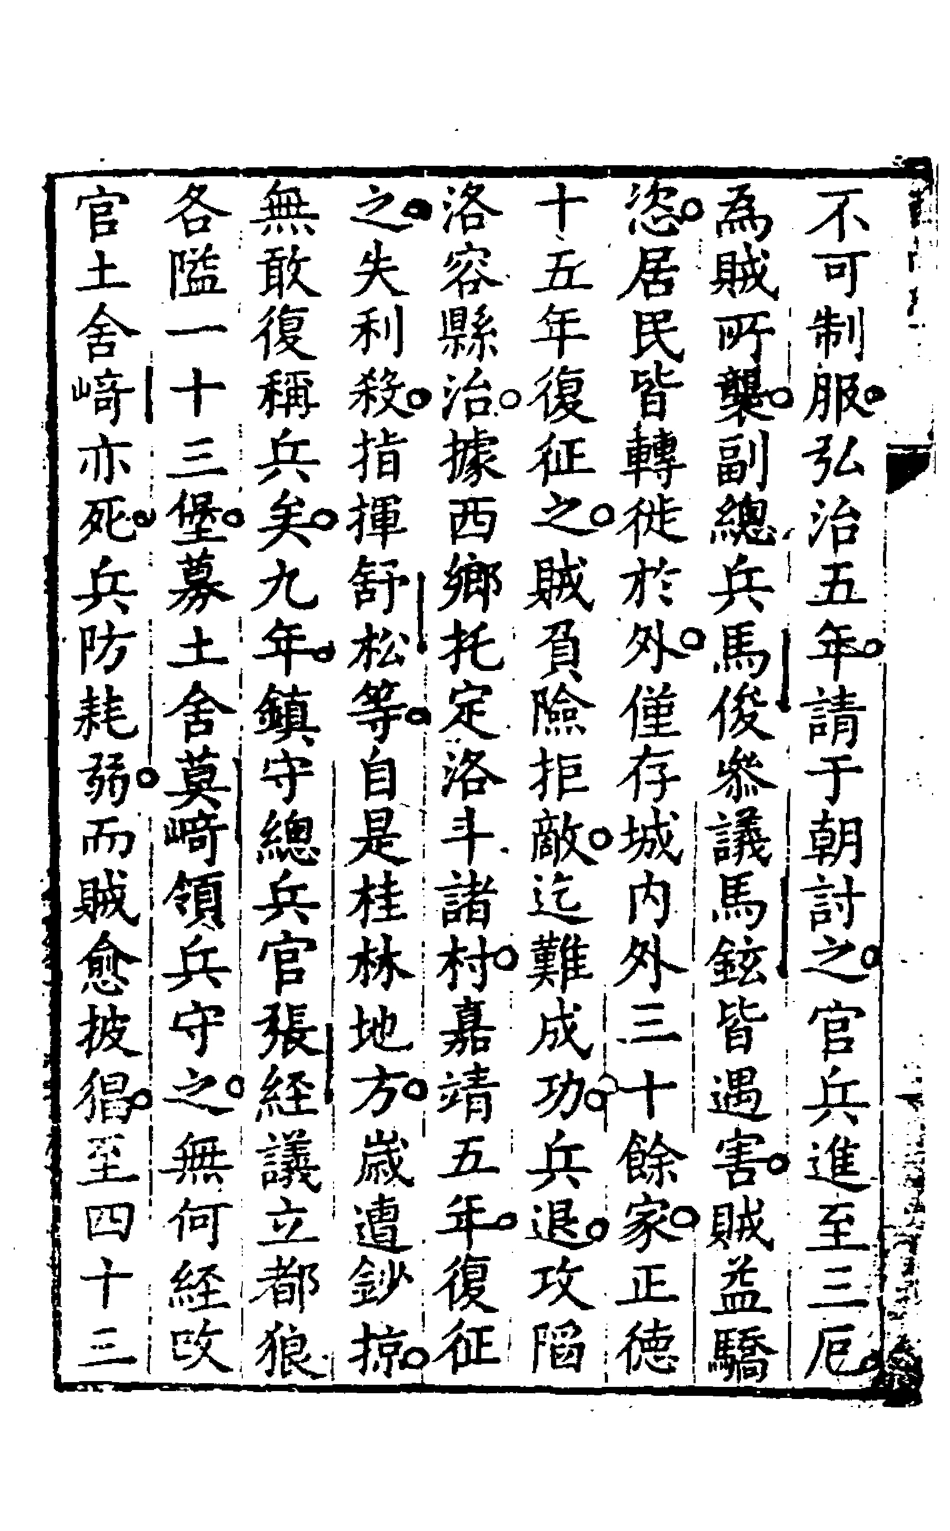 不可制服弘治五年請于朝討之官兵進至三厄
為賊所襲副總兵馬俊參議馬鉉皆遇害賊益驕
恣居民皆轉徙於外僅存城內外三十餘家正德
十五年復征之賊負險拒敵迄難成功兵退攻陷
洛容縣治據西鄉托定洛斗諸村嘉靖五年復征
之失利殺指揮舒松等自是桂林地方歲遭鈔掠
無敢復稱兵矣九年鎮守總兵官張経議立都狼
各隘一十三堡募土舍莫﨑領兵守之無何経改
官土舍﨑亦死兵防耗弱而賊愈披猖至四十三